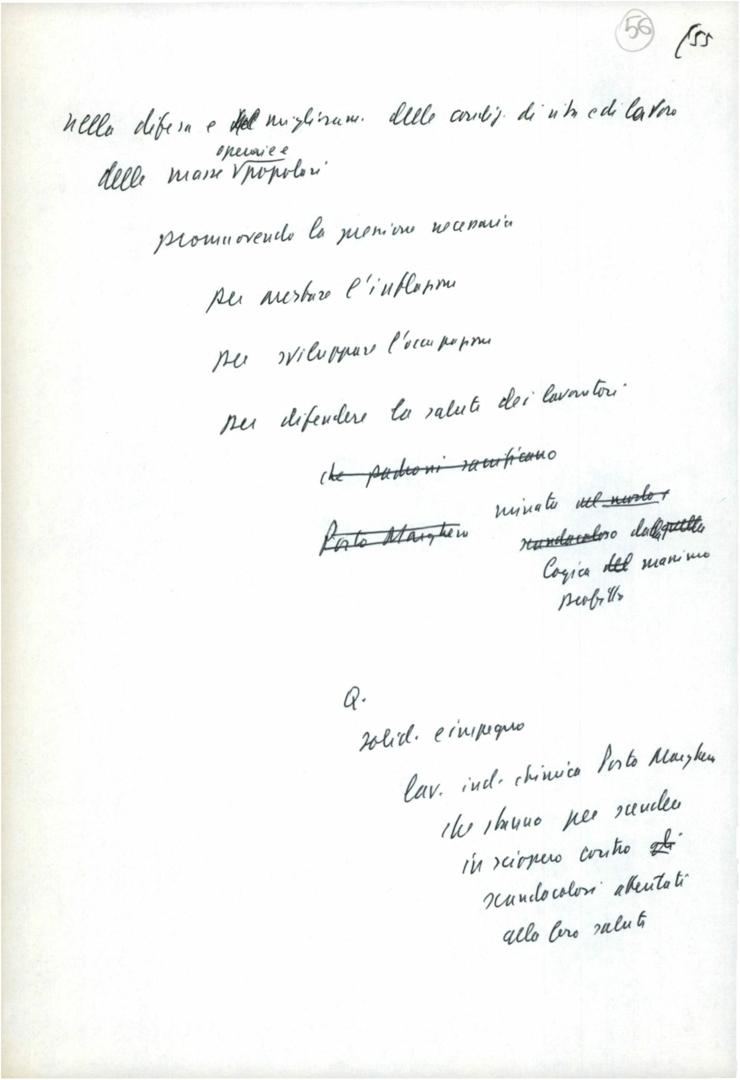 56
155
nella difesa e nel miglioram. delle condiz. di vita e di lavoro
operaie e
delle masse popolari
promuovendo la pressione necessaria
per arrestare l'inflazione
per sviluppare l'occupazione
per difendere la salute dei lavoratori
che padroni sacrificano
Porto Marghera minata nel modo
scandaloso dalla quella
logica del massimo
profitto
Q.
solid. e impegno
lav. ind. chimica Porto Marghera
che stanno per scendere
in sciopero contro gli
scandalosi attentati
alla loro salute